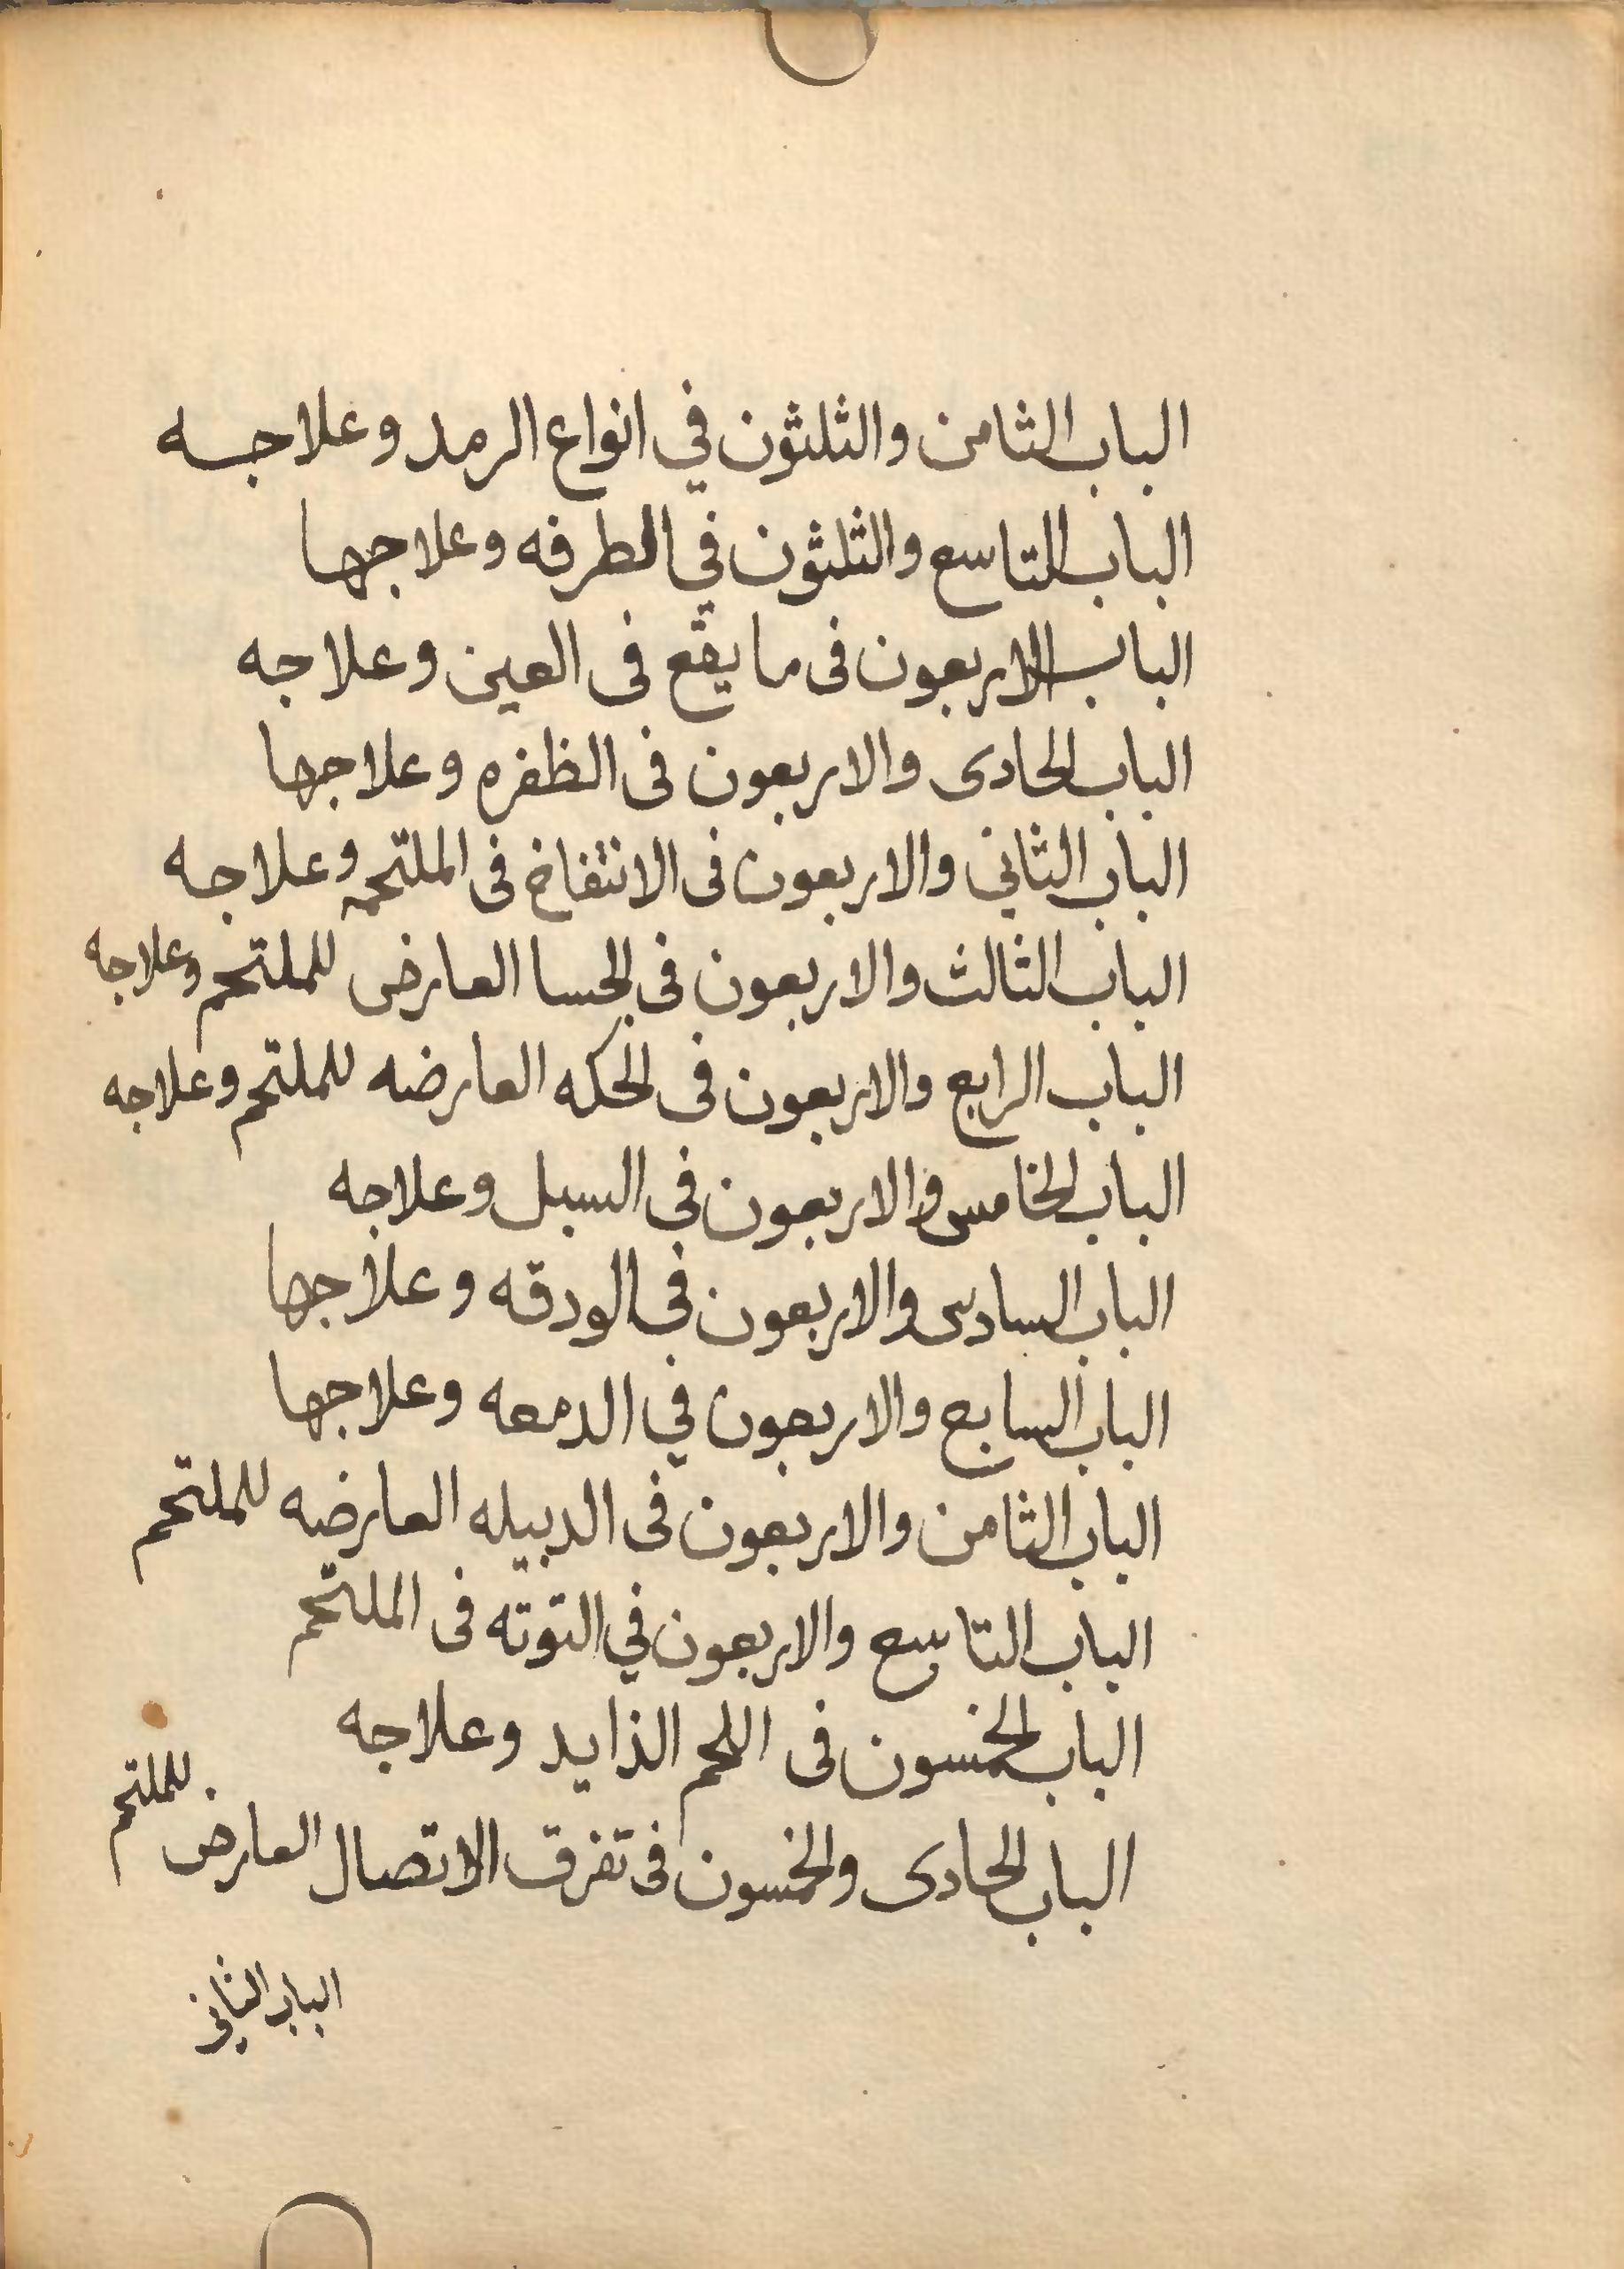 الباب الثامن والثلثون في انواع الرمد وعلاجه
الباب التاسع والثلثون في الطرفه وعلاجها
الباب الاربعون فى ما يقع فى العين وعلاجه
الباب الحادى والاربعون فى الظفره وعلاجها
الباب الثاني والاربعون فى الانتفاخ فى الملتحمه وعلاجه
الباب الثالث والاربعون فى الجسا العارض للملتحم وعلاجه
الباب الرابع والاربعون فى الحكه العارضه للملتحم وعلاجه
الباب الخامس والاربعون فى السبل وعلاجه
الباب السادس والاربعون فى الودقه وعلاجها
الباب السابع والاربعون في الدمعه وعلاجها
الباب الثامن والاربعون فى الدبيله العارضه للملتحم
الباب التاسع والاربعون في التوته فى الملتحم
الباب الخمسون فى اللحم الذايد وعلاجه
الباب الحادى والخمسون فى تفرق الاتصال العارض للملتحم
الباب الثاني